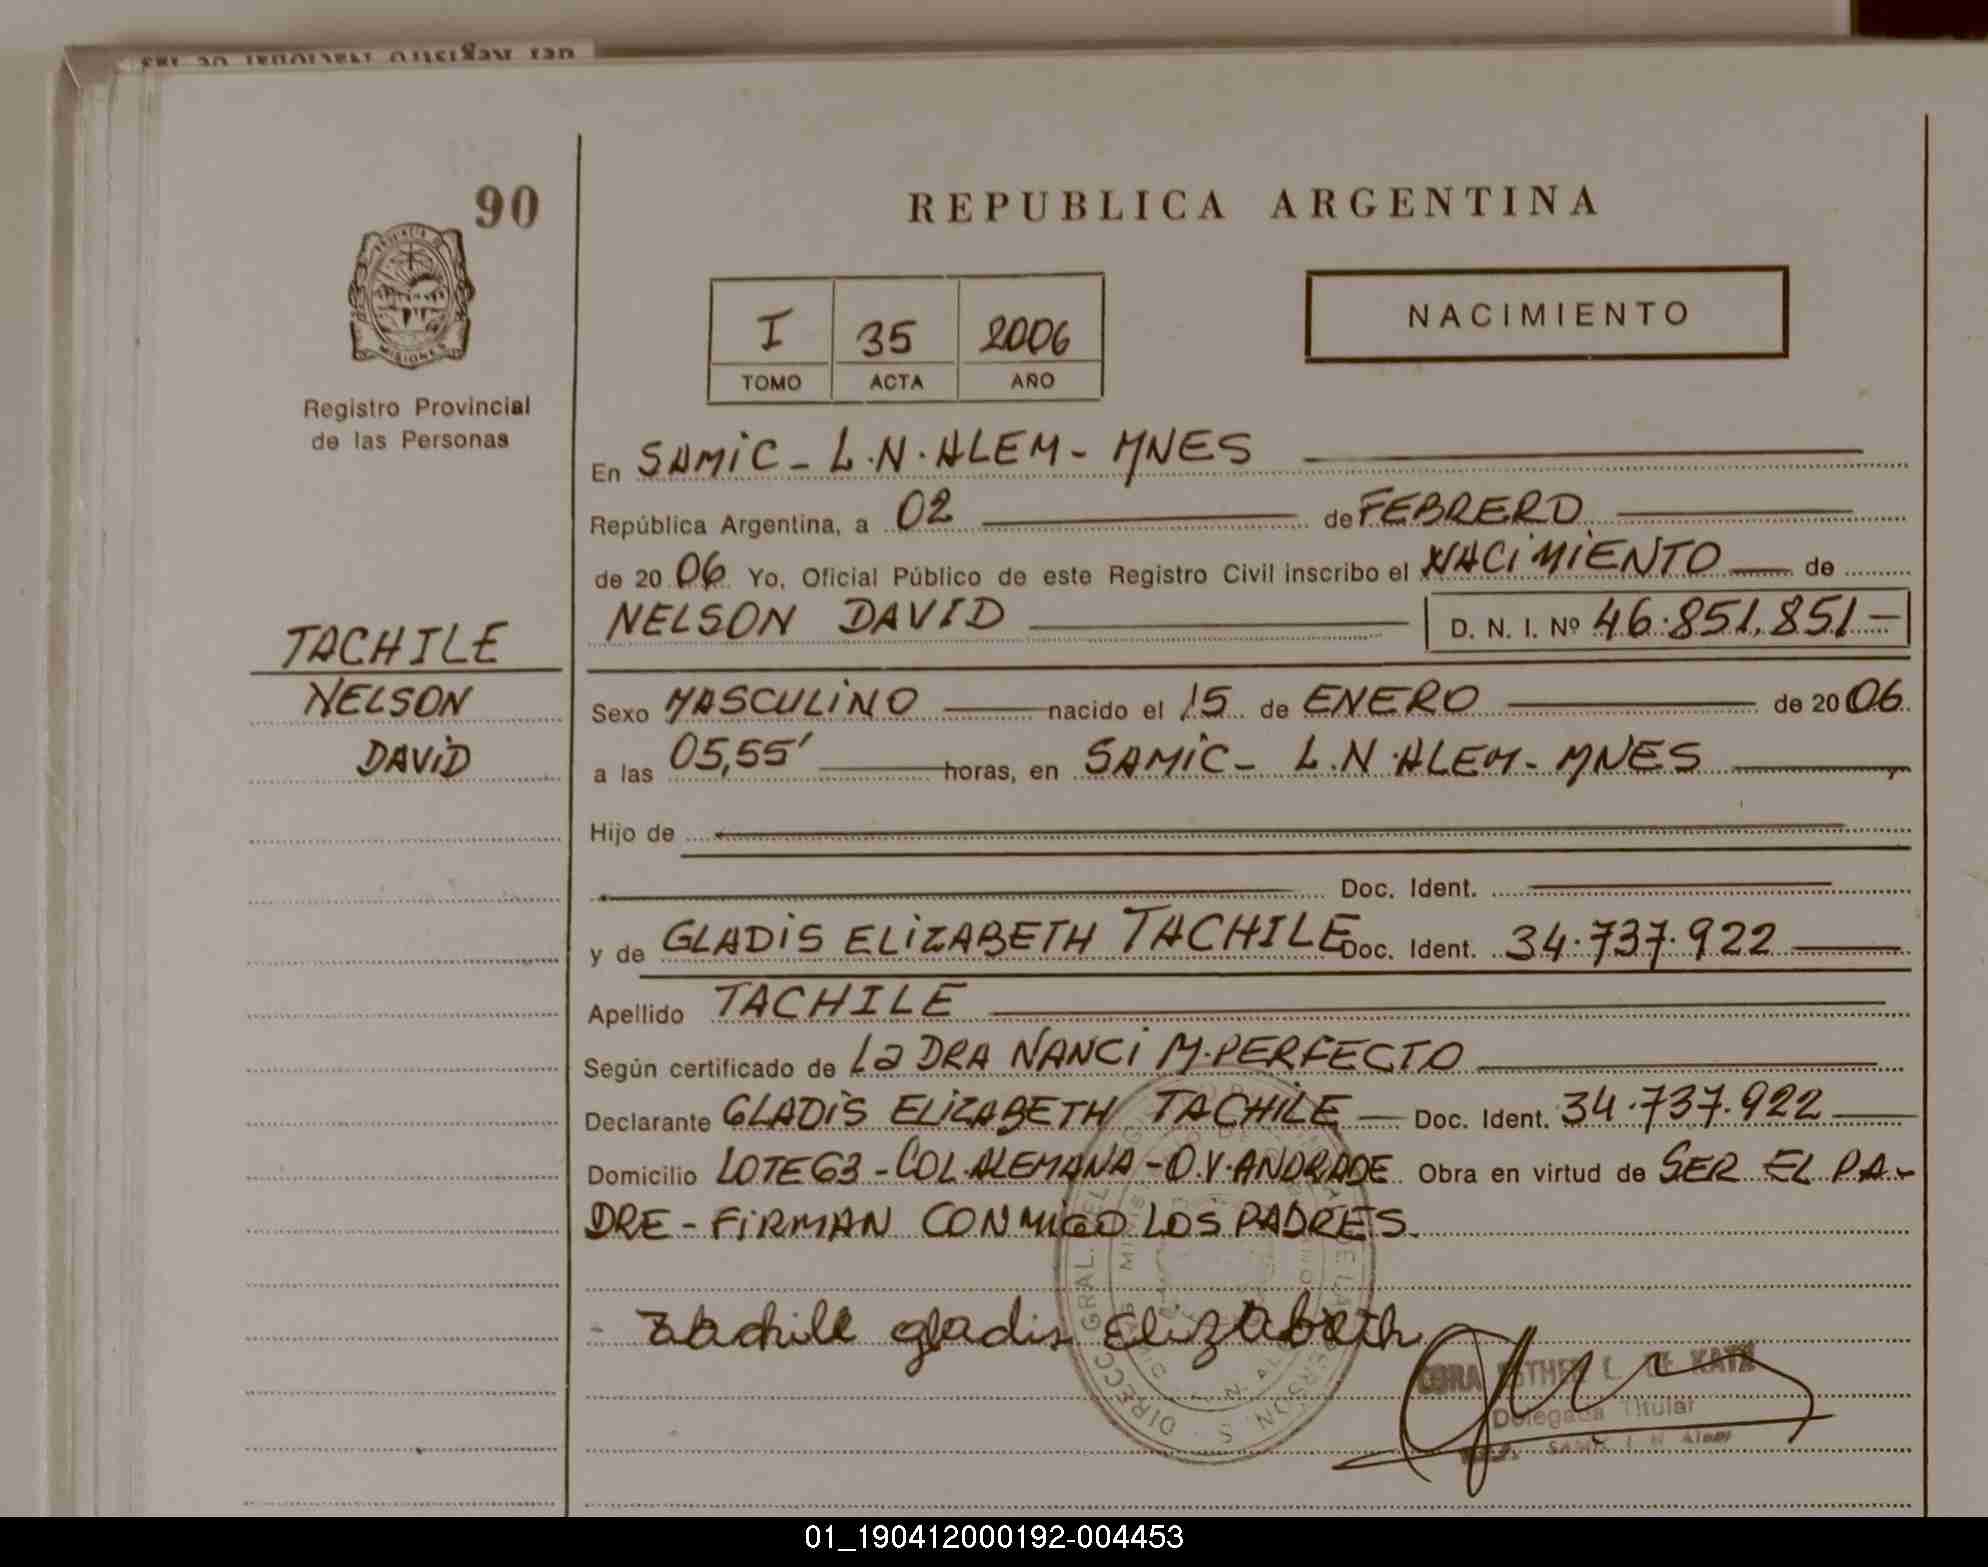 90
REPUBLICA ARGENTINA
MISIONES
I 35 2006
TOMO ACTA AÑO
NACIMIENTO
Registro Provincial
de las Personas
En SAMiC - L.N.ALEM - MNES
República Argentina, a 02 de FEBRERO
de 2006 Yo, Oficial Público de este Registro Civil inscribo el NACiMiENTO de
NELSON DAVID D. N. I. Nº 46.851.851-
TACHILE
NELSON
DAViD
Sexo MASCULiNO nacido el 15 de ENERO de 2006
a las 05,55' horas, en SAMiC - L.N.ALEM - MNES
Hijo de
Doc. Ident.
y de GLADiS ELiZABETH TACHILE Doc. Ident. 34.737.922
Apellido TACHILE
Según certificado de La DRA NANCi M.PERFECTO
Declarante GLADiS ELiZABETH TACHiLE Doc. Ident. 34.737.922
Domicilio LOTE 63 - COL.ALEMANA - O.V.ANDRADE Obra en virtud de SER EL PA-
DRE - FiRMAN CONMiGO LOS PADRES.
Tachile gladis Elizabeth
ESTHER L. DE KATZ
Delegada Titular
01_190412000192-004453